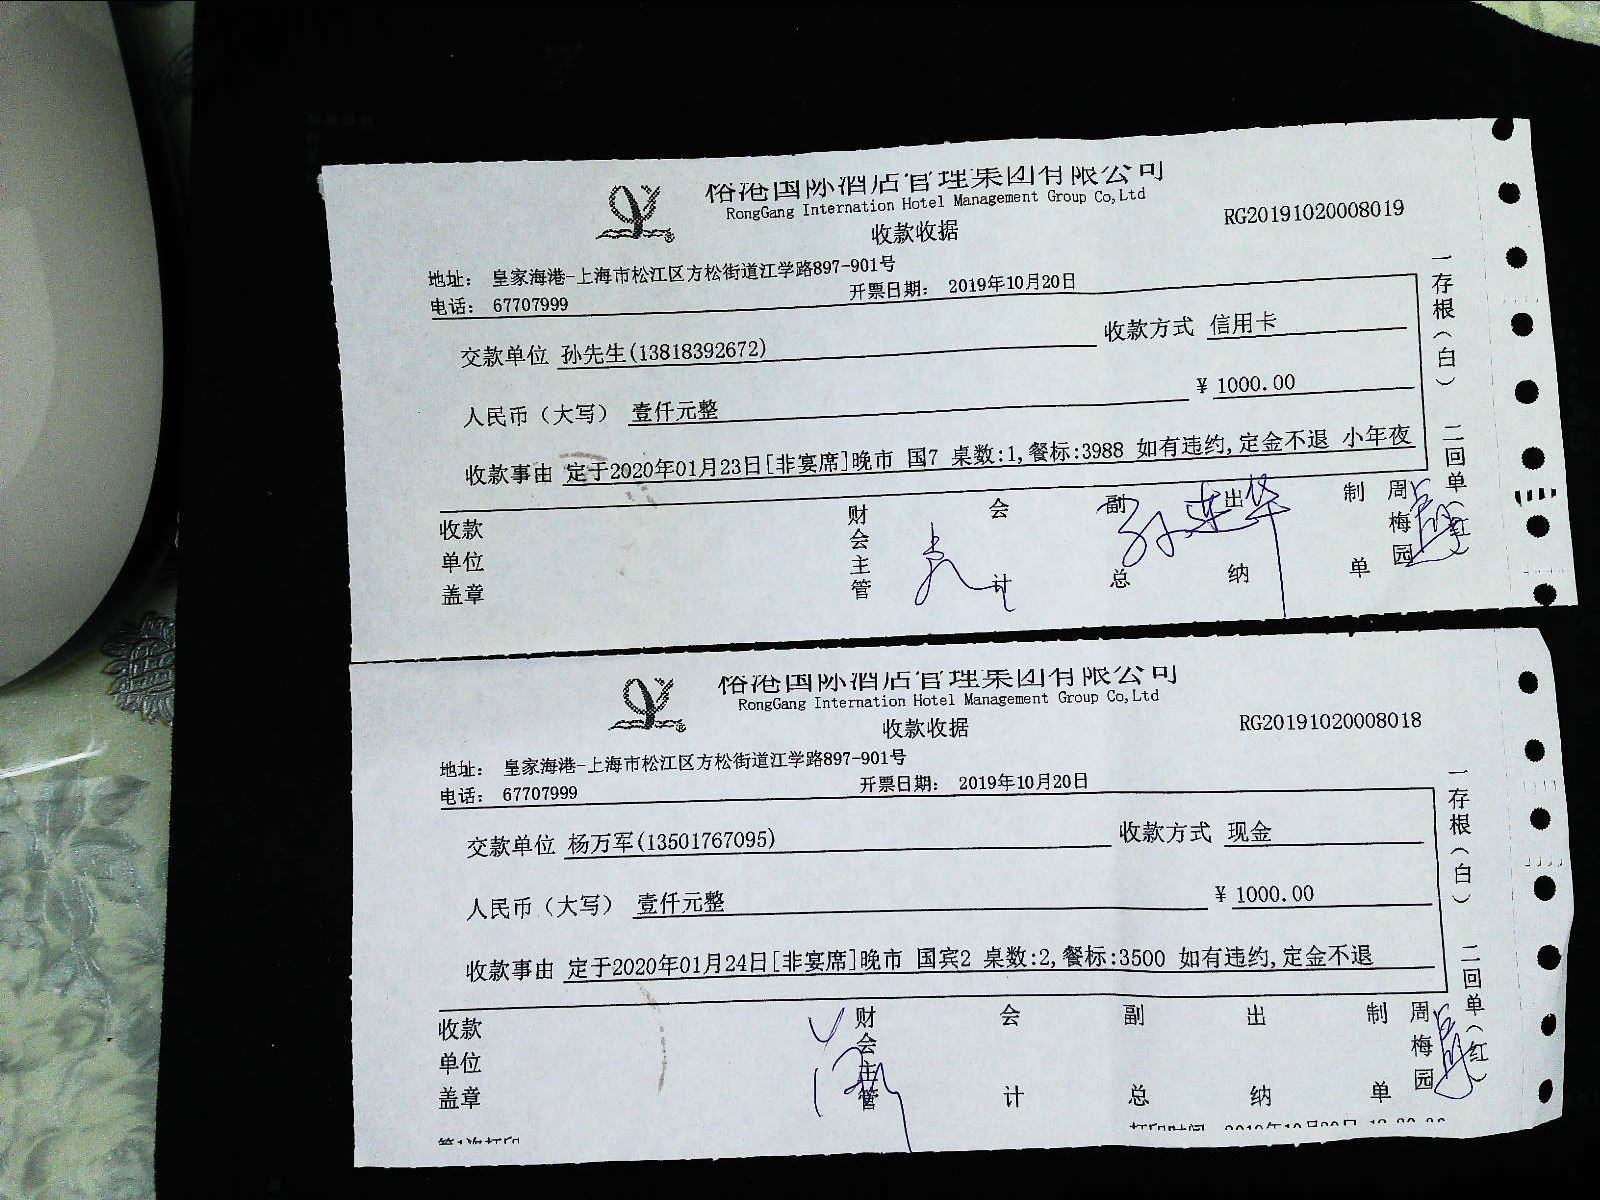 俗港国际酒店管理集团有限公司
RongGang Internation Hotel Management Group Co,Ltd
收款收据
RG20191020008019
地址: 皇家海港-上海市松江区方松街道江学路897-901号
电话: 67707999 开票日期: 2019年10月20日
交款单位 孙先生(13818392672) 收款方式 信用卡
人民币（大写） 壹仟元整 ¥ 1000.00
收款事由 定于2020年01月23日[非宴席]晚市 国7 桌数:1,餐标:3988 如有违约,定金不退 小年夜
收款单位盖章 财会主管 会计 副总 出纳 制单 周梅园
一存根（白） 二回单（红）
俗港国际酒店管理集团有限公司
RongGang Internation Hotel Management Group Co,Ltd
收款收据
RG20191020008018
地址: 皇家海港-上海市松江区方松街道江学路897-901号
电话: 67707999 开票日期: 2019年10月20日
交款单位 杨万军(13501767095) 收款方式 现金
人民币（大写） 壹仟元整 ¥ 1000.00
收款事由 定于2020年01月24日[非宴席]晚市 国宾2 桌数:2,餐标:3500 如有违约,定金不退
收款单位盖章 财会主管 会计 副总 出纳 制单 周梅园
一存根（白） 二回单（红）
第1次打印 打印时间 2019年10月20日